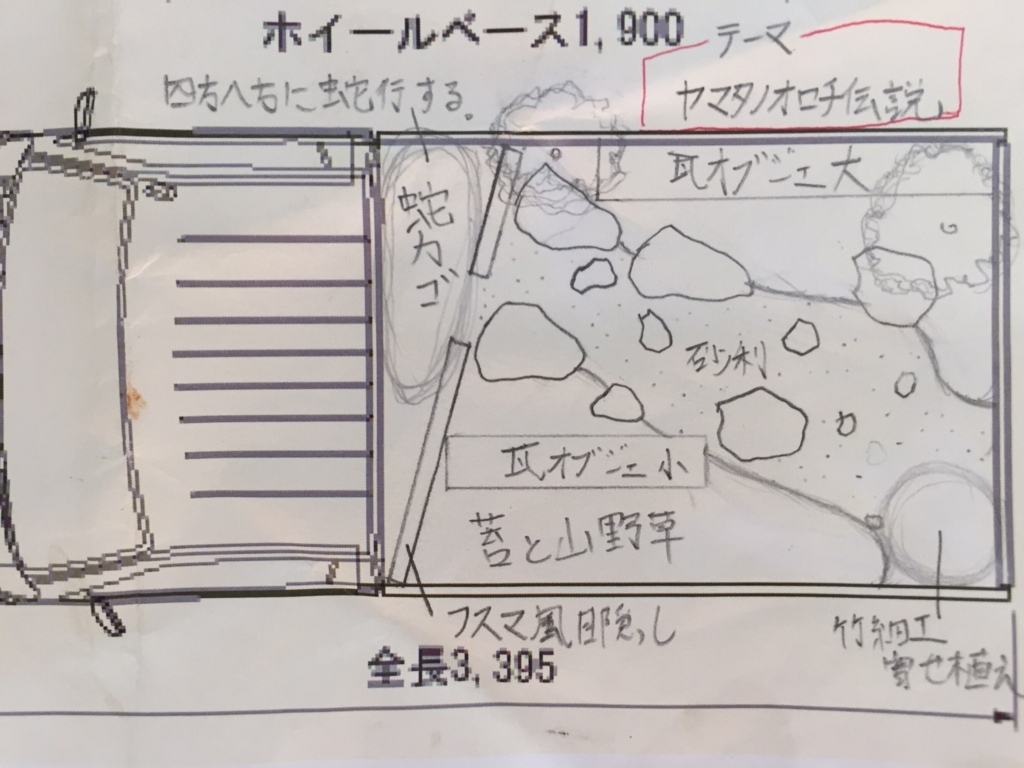 ホイールベース1,900
テーマ
ヤマタノオロチ伝説
四方八方に蛇行する。
蛇カゴ
瓦オブジェ大
砂利
瓦オブジェ小
苔と山野草
フスマ風目隠し
竹細工
寄せ植え
全長3,395